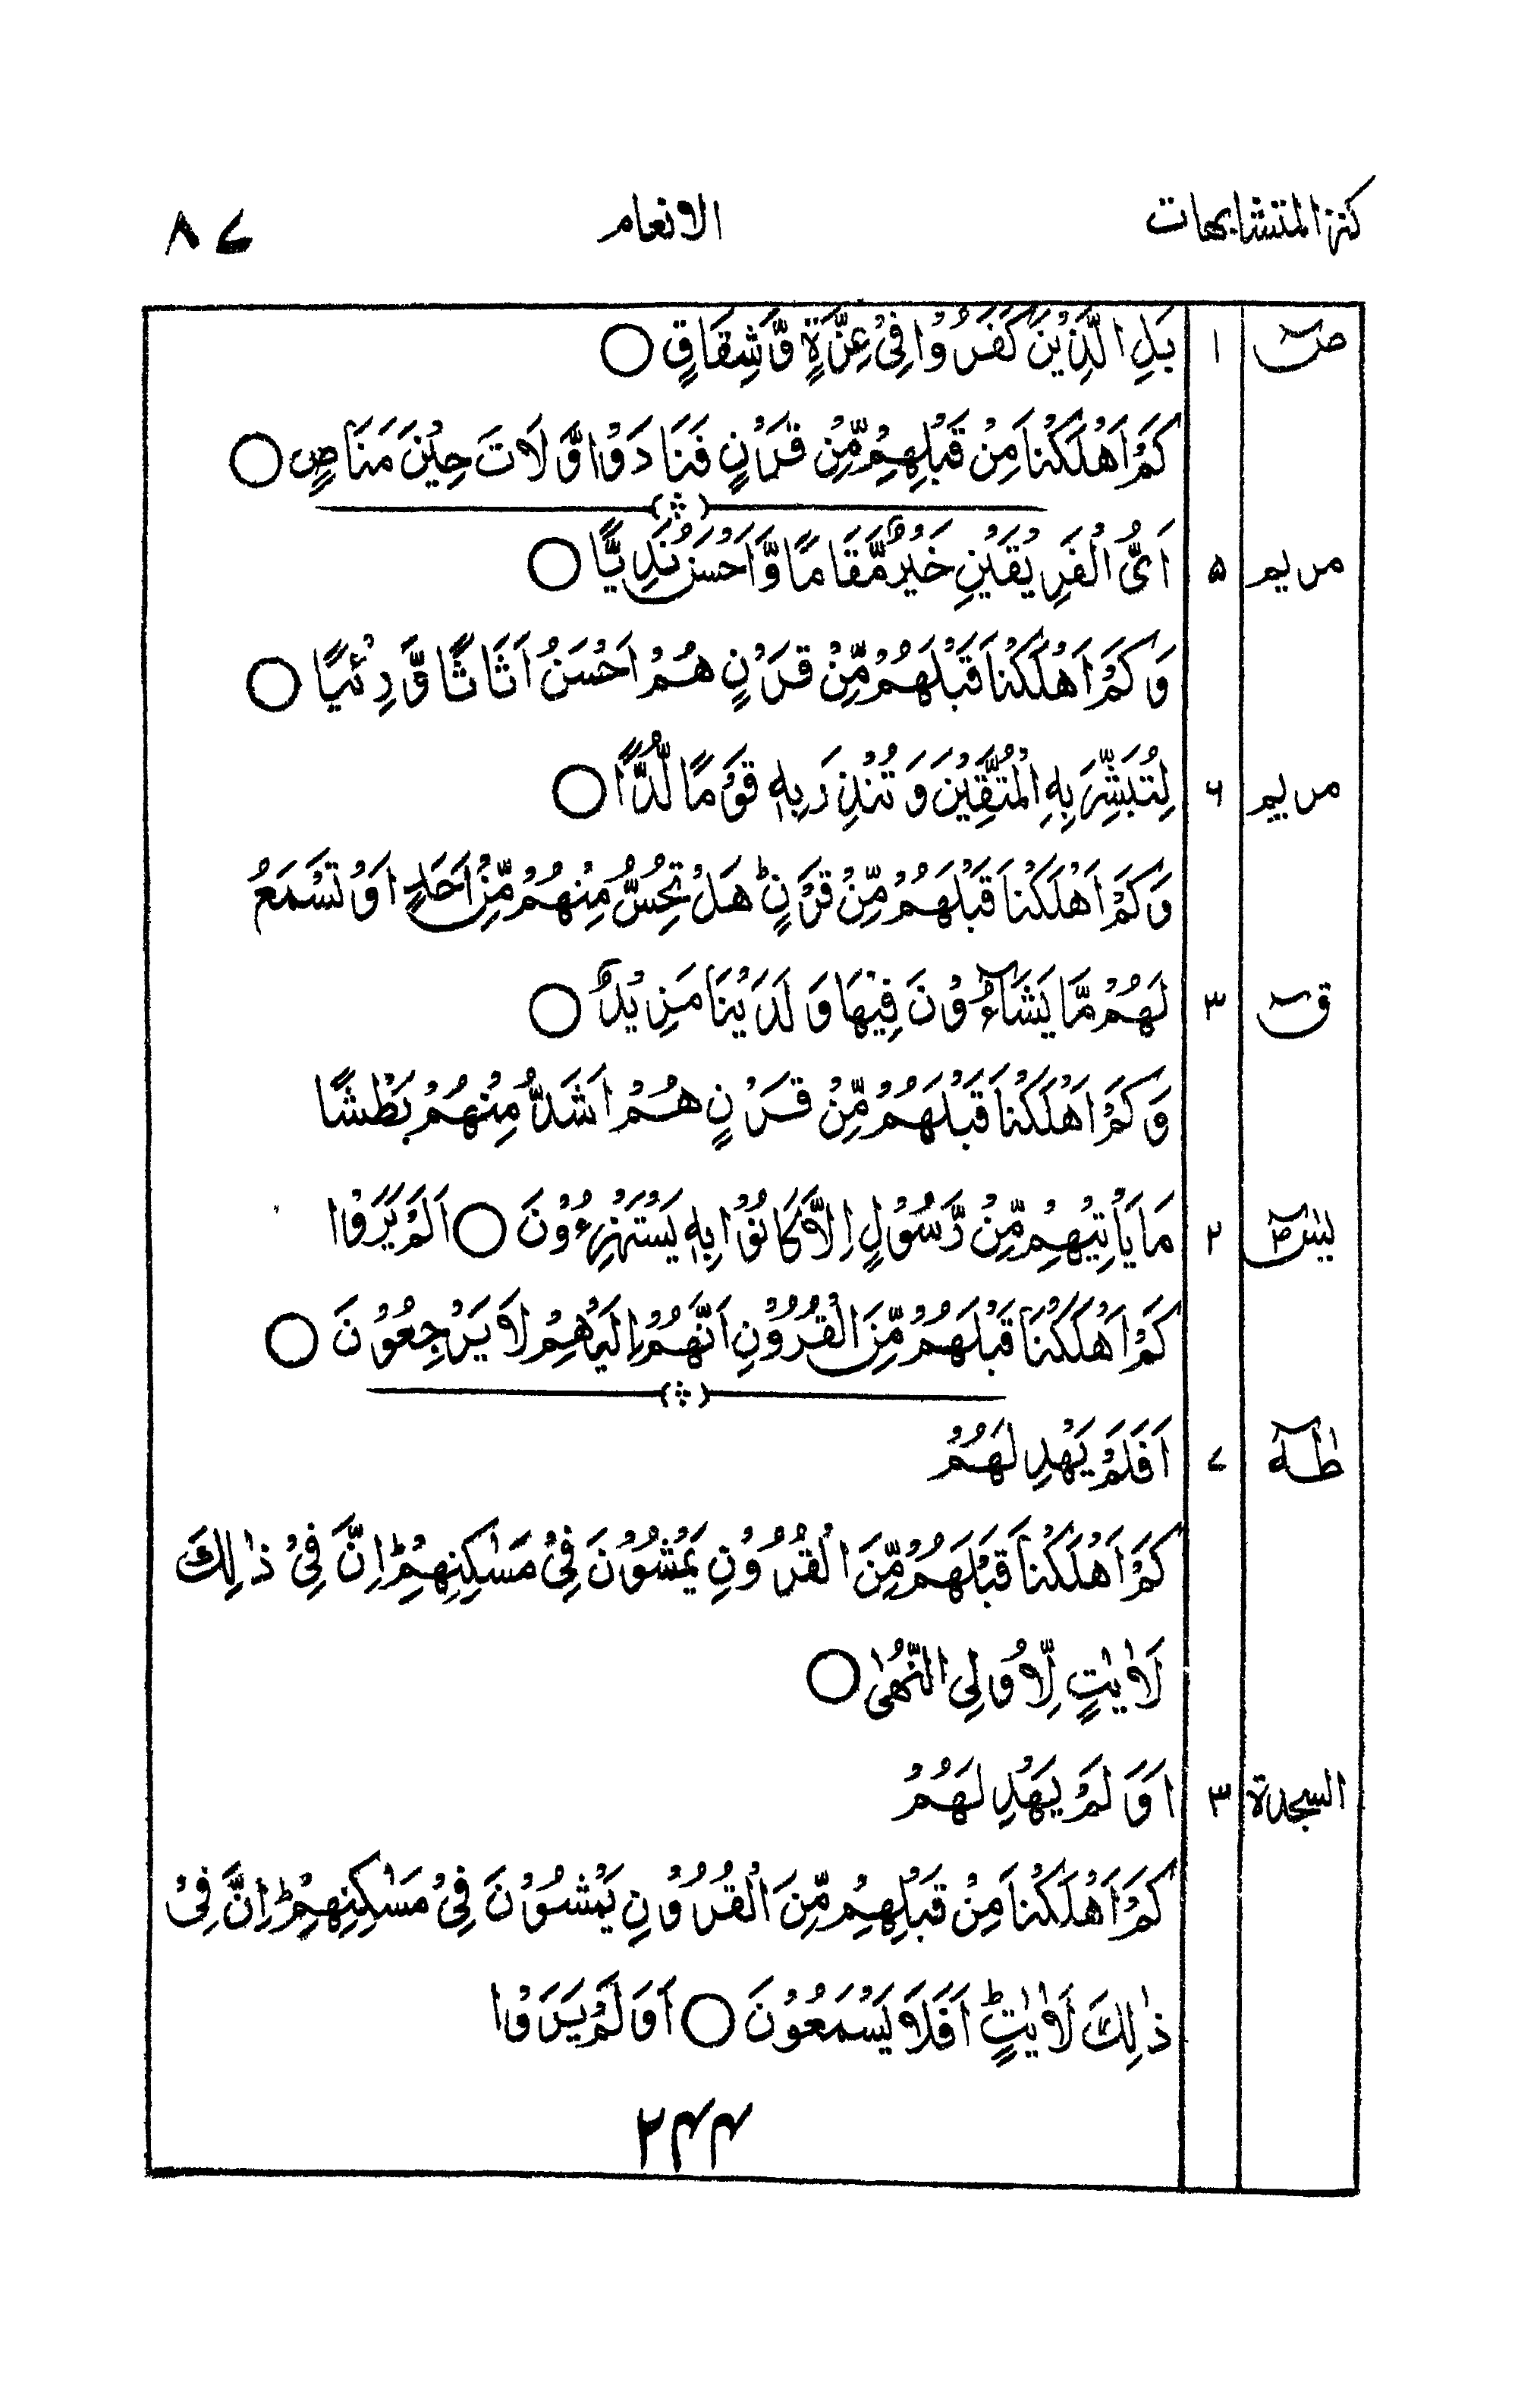 كنز المتشابهات الانعام ٨٧
صٓ ١ بَلِ الَّذِيْنَ كَفَرُوْا فِيْ عِزَّةٍ وَّشِقَاقٍ ○
كَمْ اَهْلَكْنَا مِنْ قَبْلِهِمْ مِّنْ قَرْنٍ فَنَادَوْا وَّلَاتَ حِيْنَ مَنَاصٍ ○
مريم ۵ اَيُّ الْفَرِيْقَيْنِ خَيْرٌ مَّقَامًا وَّاَحْسَنُ نَدِيًّا ○
وَكَمْ اَهْلَكْنَا قَبْلَهُمْ مِّنْ قَرْنٍ هُمْ اَحْسَنُ اَثَاثًا وَّرِئْيًا ○
مريم ۶ لِتُبَشِّرَ بِهِ الْمُتَّقِيْنَ وَتُنْذِرَ بِهٖ قَوْمًا لُّدًّا ○
وَكَمْ اَهْلَكْنَا قَبْلَهُمْ مِّنْ قَرْنٍ ؕ هَلْ تُحِسُّ مِنْهُمْ مِّنْ اَحَدٍ اَوْ تَسْمَعُ
قٓ ٣ لَهُمْ مَّا يَشَآءُوْنَ فِيْهَا وَلَدَيْنَا مَزِيْدٌ ○
وَكَمْ اَهْلَكْنَا قَبْلَهُمْ مِّنْ قَرْنٍ هُمْ اَشَدُّ مِنْهُمْ بَطْشًا
يٰسٓ ٢ مَا يَاْتِيْهِمْ مِّنْ رَّسُوْلٍ اِلَّا كَانُوْا بِهٖ يَسْتَهْزِءُوْنَ ○ اَلَمْ يَرَوْا
كَمْ اَهْلَكْنَا قَبْلَهُمْ مِّنَ الْقُرُوْنِ اَنَّهُمْ اِلَيْهِمْ لَا يَرْجِعُوْنَ ○
طٰهٰ ٧ اَفَلَمْ يَهْدِ لَهُمْ
كَمْ اَهْلَكْنَا قَبْلَهُمْ مِّنَ الْقُرُوْنِ يَمْشُوْنَ فِيْ مَسٰكِنِهِمْ ؕ اِنَّ فِيْ ذٰلِكَ
لَاٰيٰتٍ لِّاُولِي النُّهٰى ○
السجدة ٣ اَوَلَمْ يَهْدِ لَهُمْ
كَمْ اَهْلَكْنَا مِنْ قَبْلِهِمْ مِّنَ الْقُرُوْنِ يَمْشُوْنَ فِيْ مَسٰكِنِهِمْ ؕ اِنَّ فِيْ
ذٰلِكَ لَاٰيٰتٍ ؕ اَفَلَا يَسْمَعُوْنَ ○ اَوَلَمْ يَرَوْا